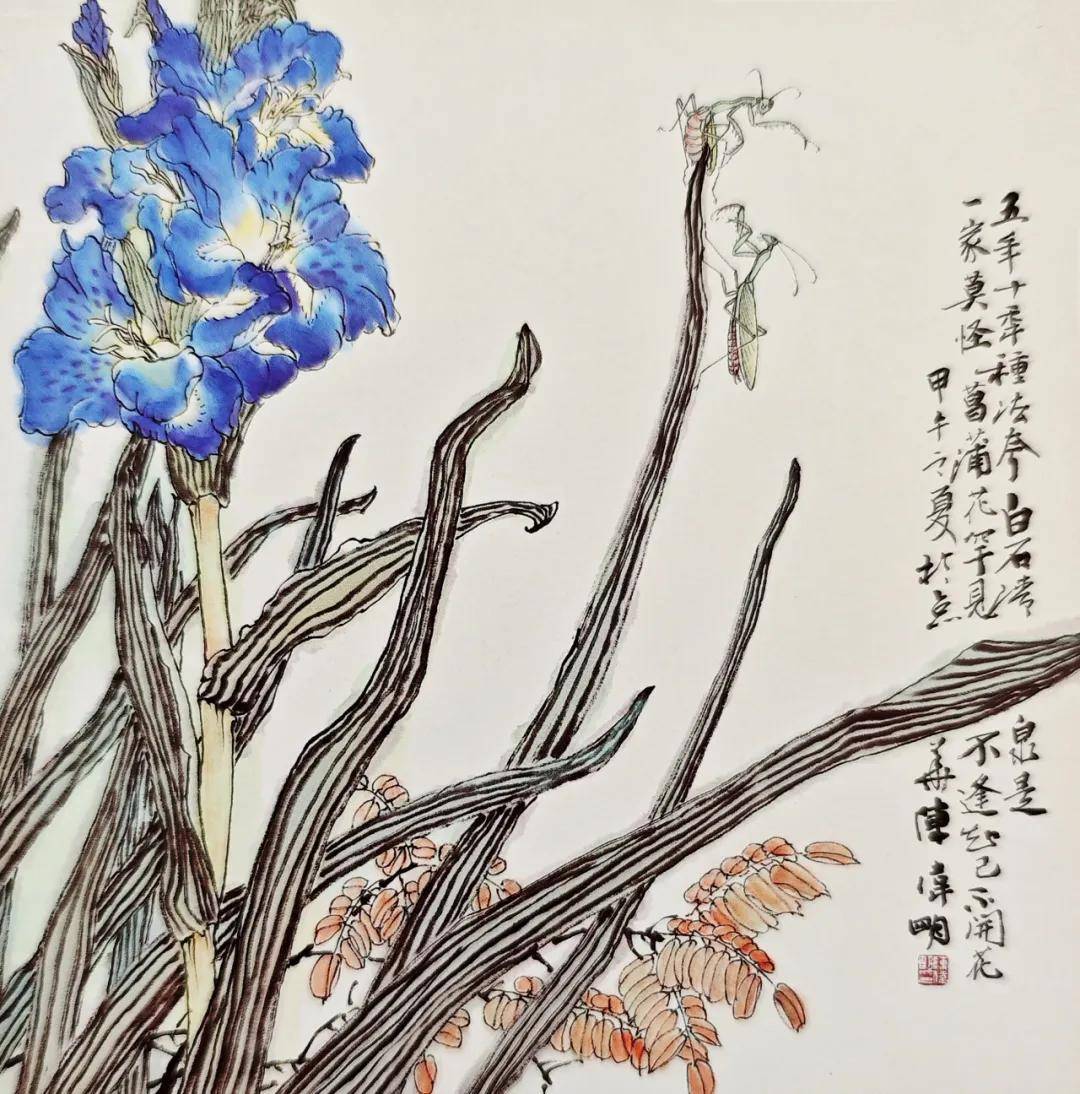 五年十秊種法夸白石清泉是
一家莫怪菖蒲花罕見不逢知己不開花
甲午之夏於点華陳偉明